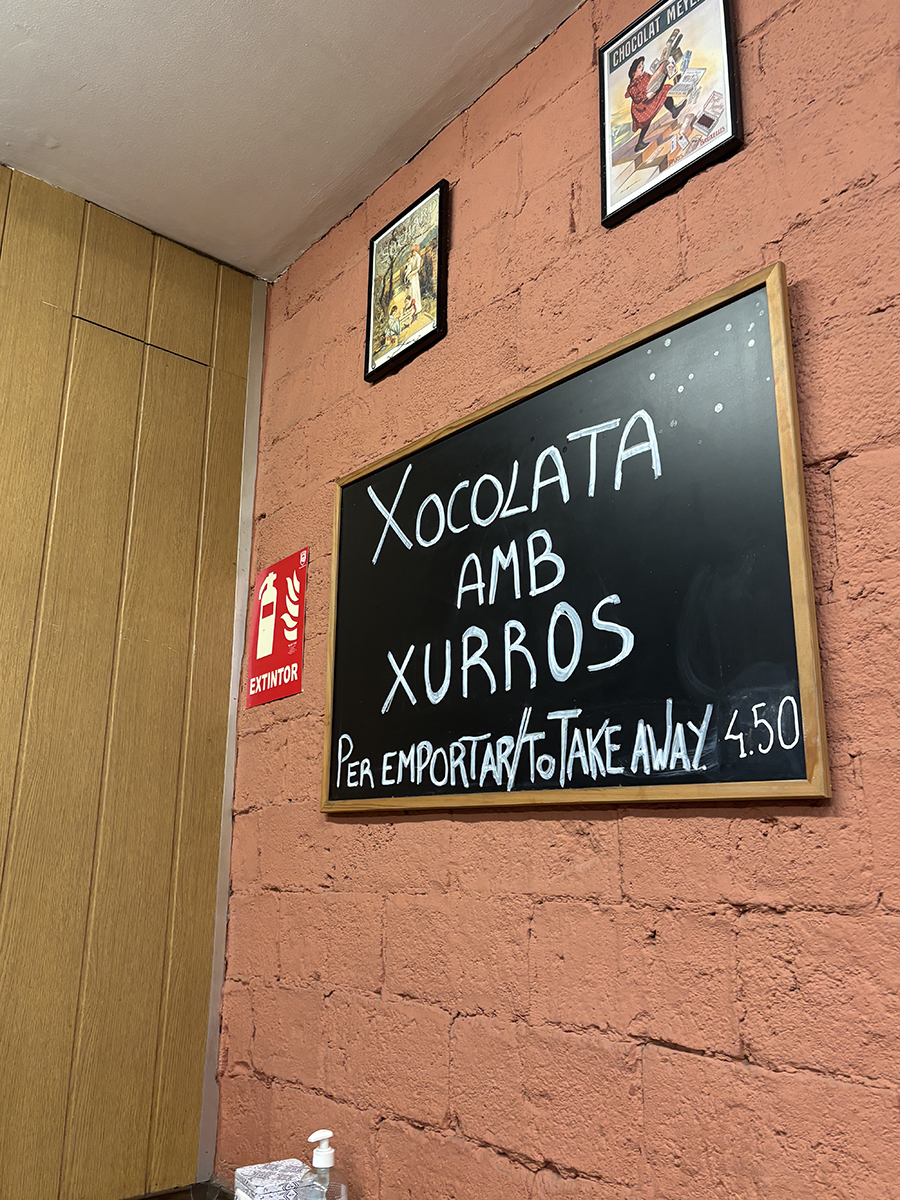 CHOCOLAT MEYE
XOCOLATA
AMB
XURROS
PER EMPORTAR/TO TAKE AWAY. 4.50
EXTINTOR